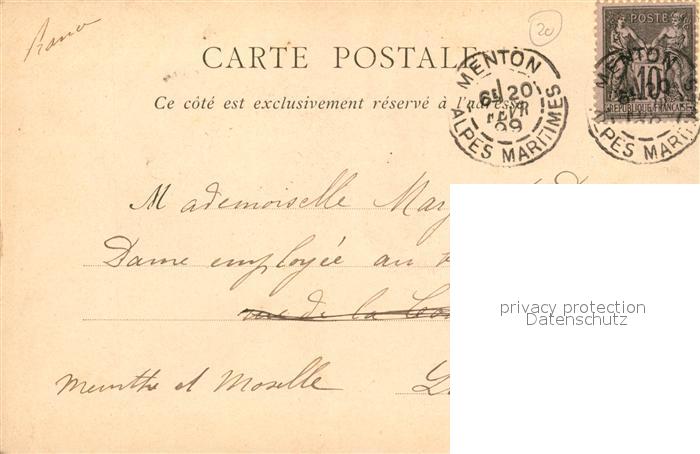 France
20
CARTE POSTALE
MENTON
6E 20
FEVR
99
ALPES MARITIMES
POSTE
10
REPUBLIQUE FRANÇAISE
MENTON
ALPES MARITIMES
Ce côté est exclusivement réservé à l'adresse
Mademoiselle
Dame employée au
rue de la
Meurthe et Moselle
privacy protection
Datenschutz